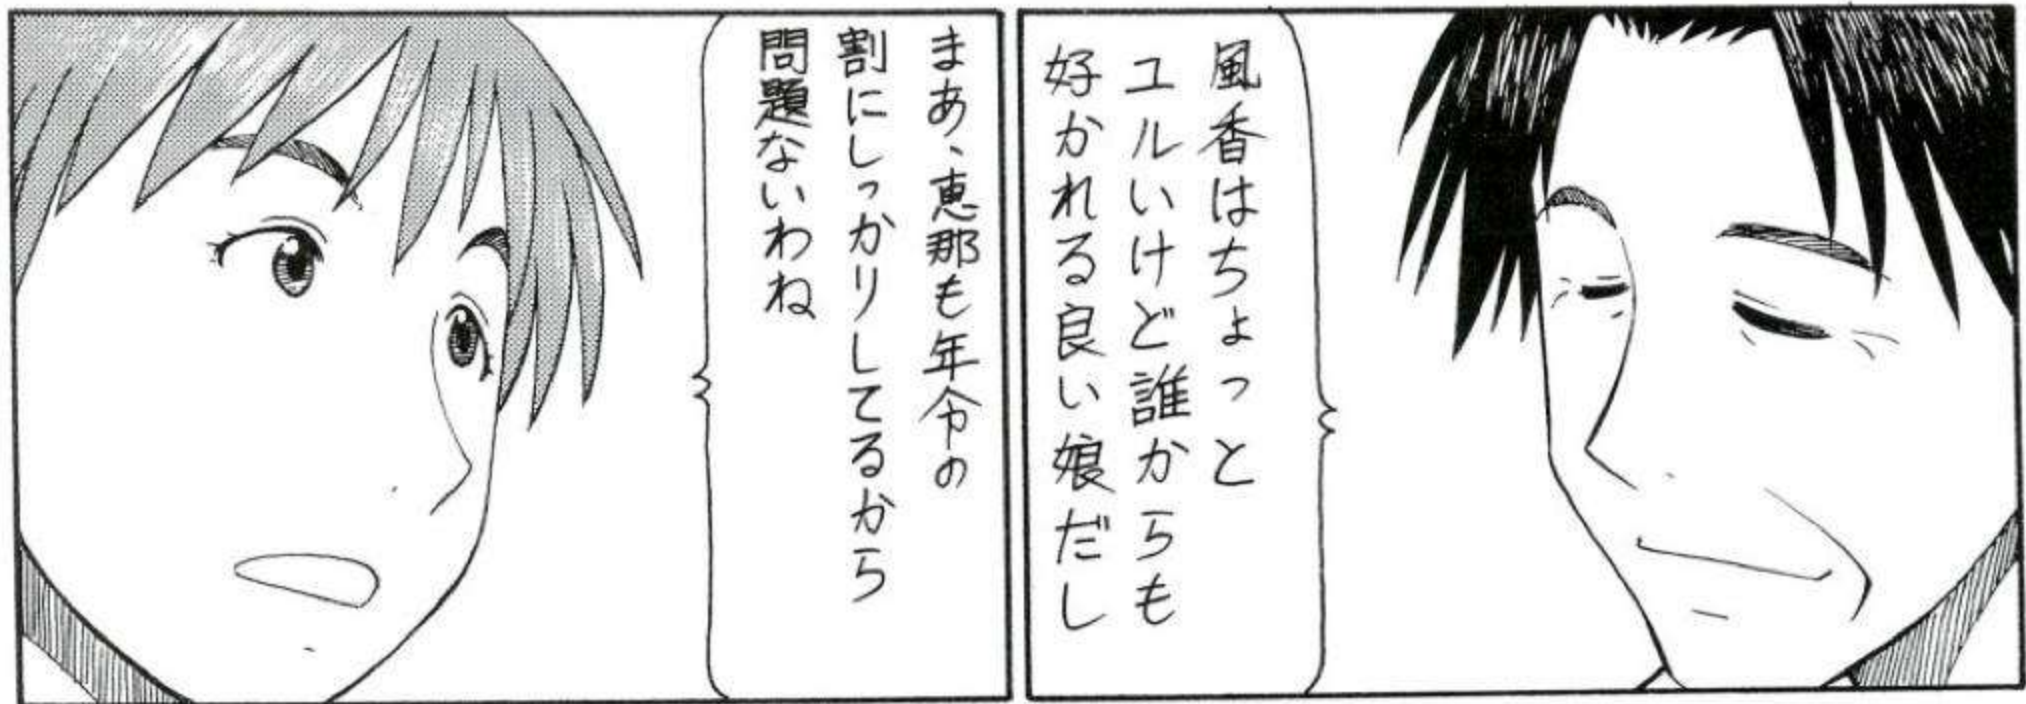 風香はちょっと
ユルいけど誰からも
好かれる良い娘だし
まあ、恵那も年令の
割にしっかりしてるから
問題ないわね